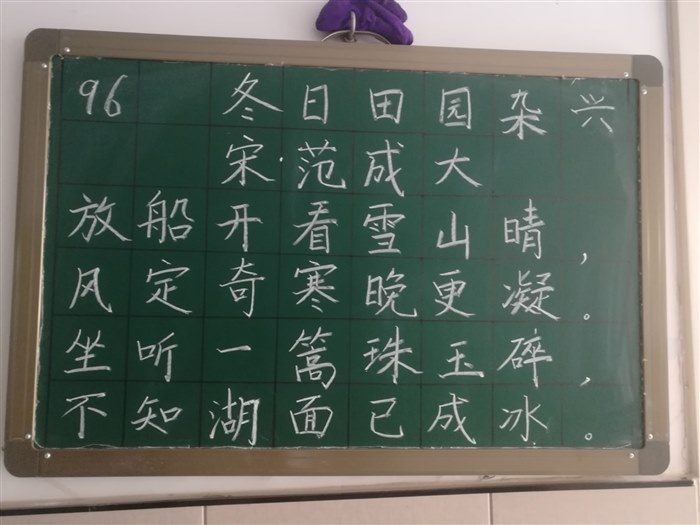 96 冬日田园杂兴
宋·范成大
放船开看雪山晴，
风定奇寒晚更凝。
坐听一篙珠玉碎，
不知湖面已成冰。